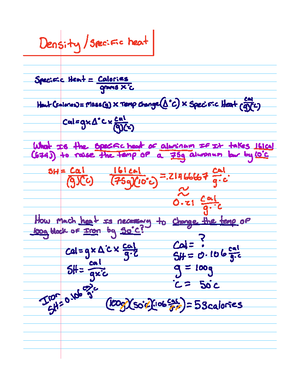 Density/Specific heat
Specific Heat = Calories
grams x °C
Heat (calories) = Mass(g) x Temp change (Δ°C) x Specific Heat cal
(g)(°C)
Cal = g x Δ°C x cal
(g)(°C)
What is the specific heat of aluminum if it takes 161cal
to raise the temp of a 75g aluminum bar by 10°C
SH = cal 161 cal = .21466667 cal
(g)(°C) (75g)(10°C) g·°C
≈
0.21 cal
g·°C
How much heat is necessary to change the temp of
100g block of Iron by 50°C?
Cal = g x Δ°C x cal
g·°C
SH = cal
g x °C
Iron
SH = 0.106 cal
g·°C
Cal = ?
SH = 0.106 cal
g·°C
g = 100g
°C = 50°C
(100g)(50°C)(.106 cal
g·°C) = 53 calories